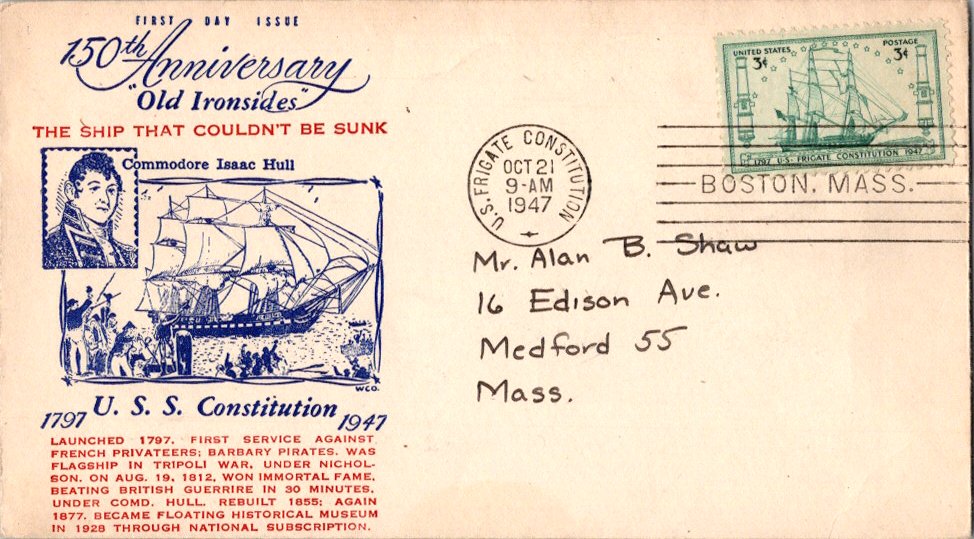 FIRST DAY ISSUE
150th Anniversary
"Old Ironsides"
THE SHIP THAT COULDN'T BE SUNK
Commodore Isaac Hull
WCO.
1797 U. S. S. Constitution 1947
LAUNCHED 1797. FIRST SERVICE AGAINST
FRENCH PRIVATEERS; BARBARY PIRATES. WAS
FLAGSHIP IN TRIPOLI WAR, UNDER NICHOL-
SON. ON AUG. 19, 1812, WON IMMORTAL FAME,
BEATING BRITISH GUERRIRE IN 30 MINUTES,
UNDER COMD. HULL. REBUILT 1855; AGAIN
1877. BECAME FLOATING HISTORICAL MUSEUM
IN 1928 THROUGH NATIONAL SUBSCRIPTION.
U.S. FRIGATE CONSTITUTION
OCT 21
9-AM
1947
UNITED STATES POSTAGE
3¢ 3¢
1797 U·S· FRIGATE CONSTITUTION 1947
BOSTON, MASS.
Mr. Alan B. Shaw
16 Edison Ave.
Medford 55
Mass.